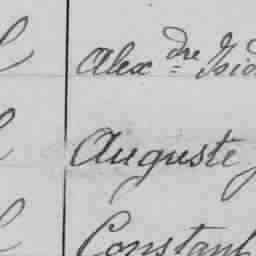 Alexdre Isid
Auguste
Constant